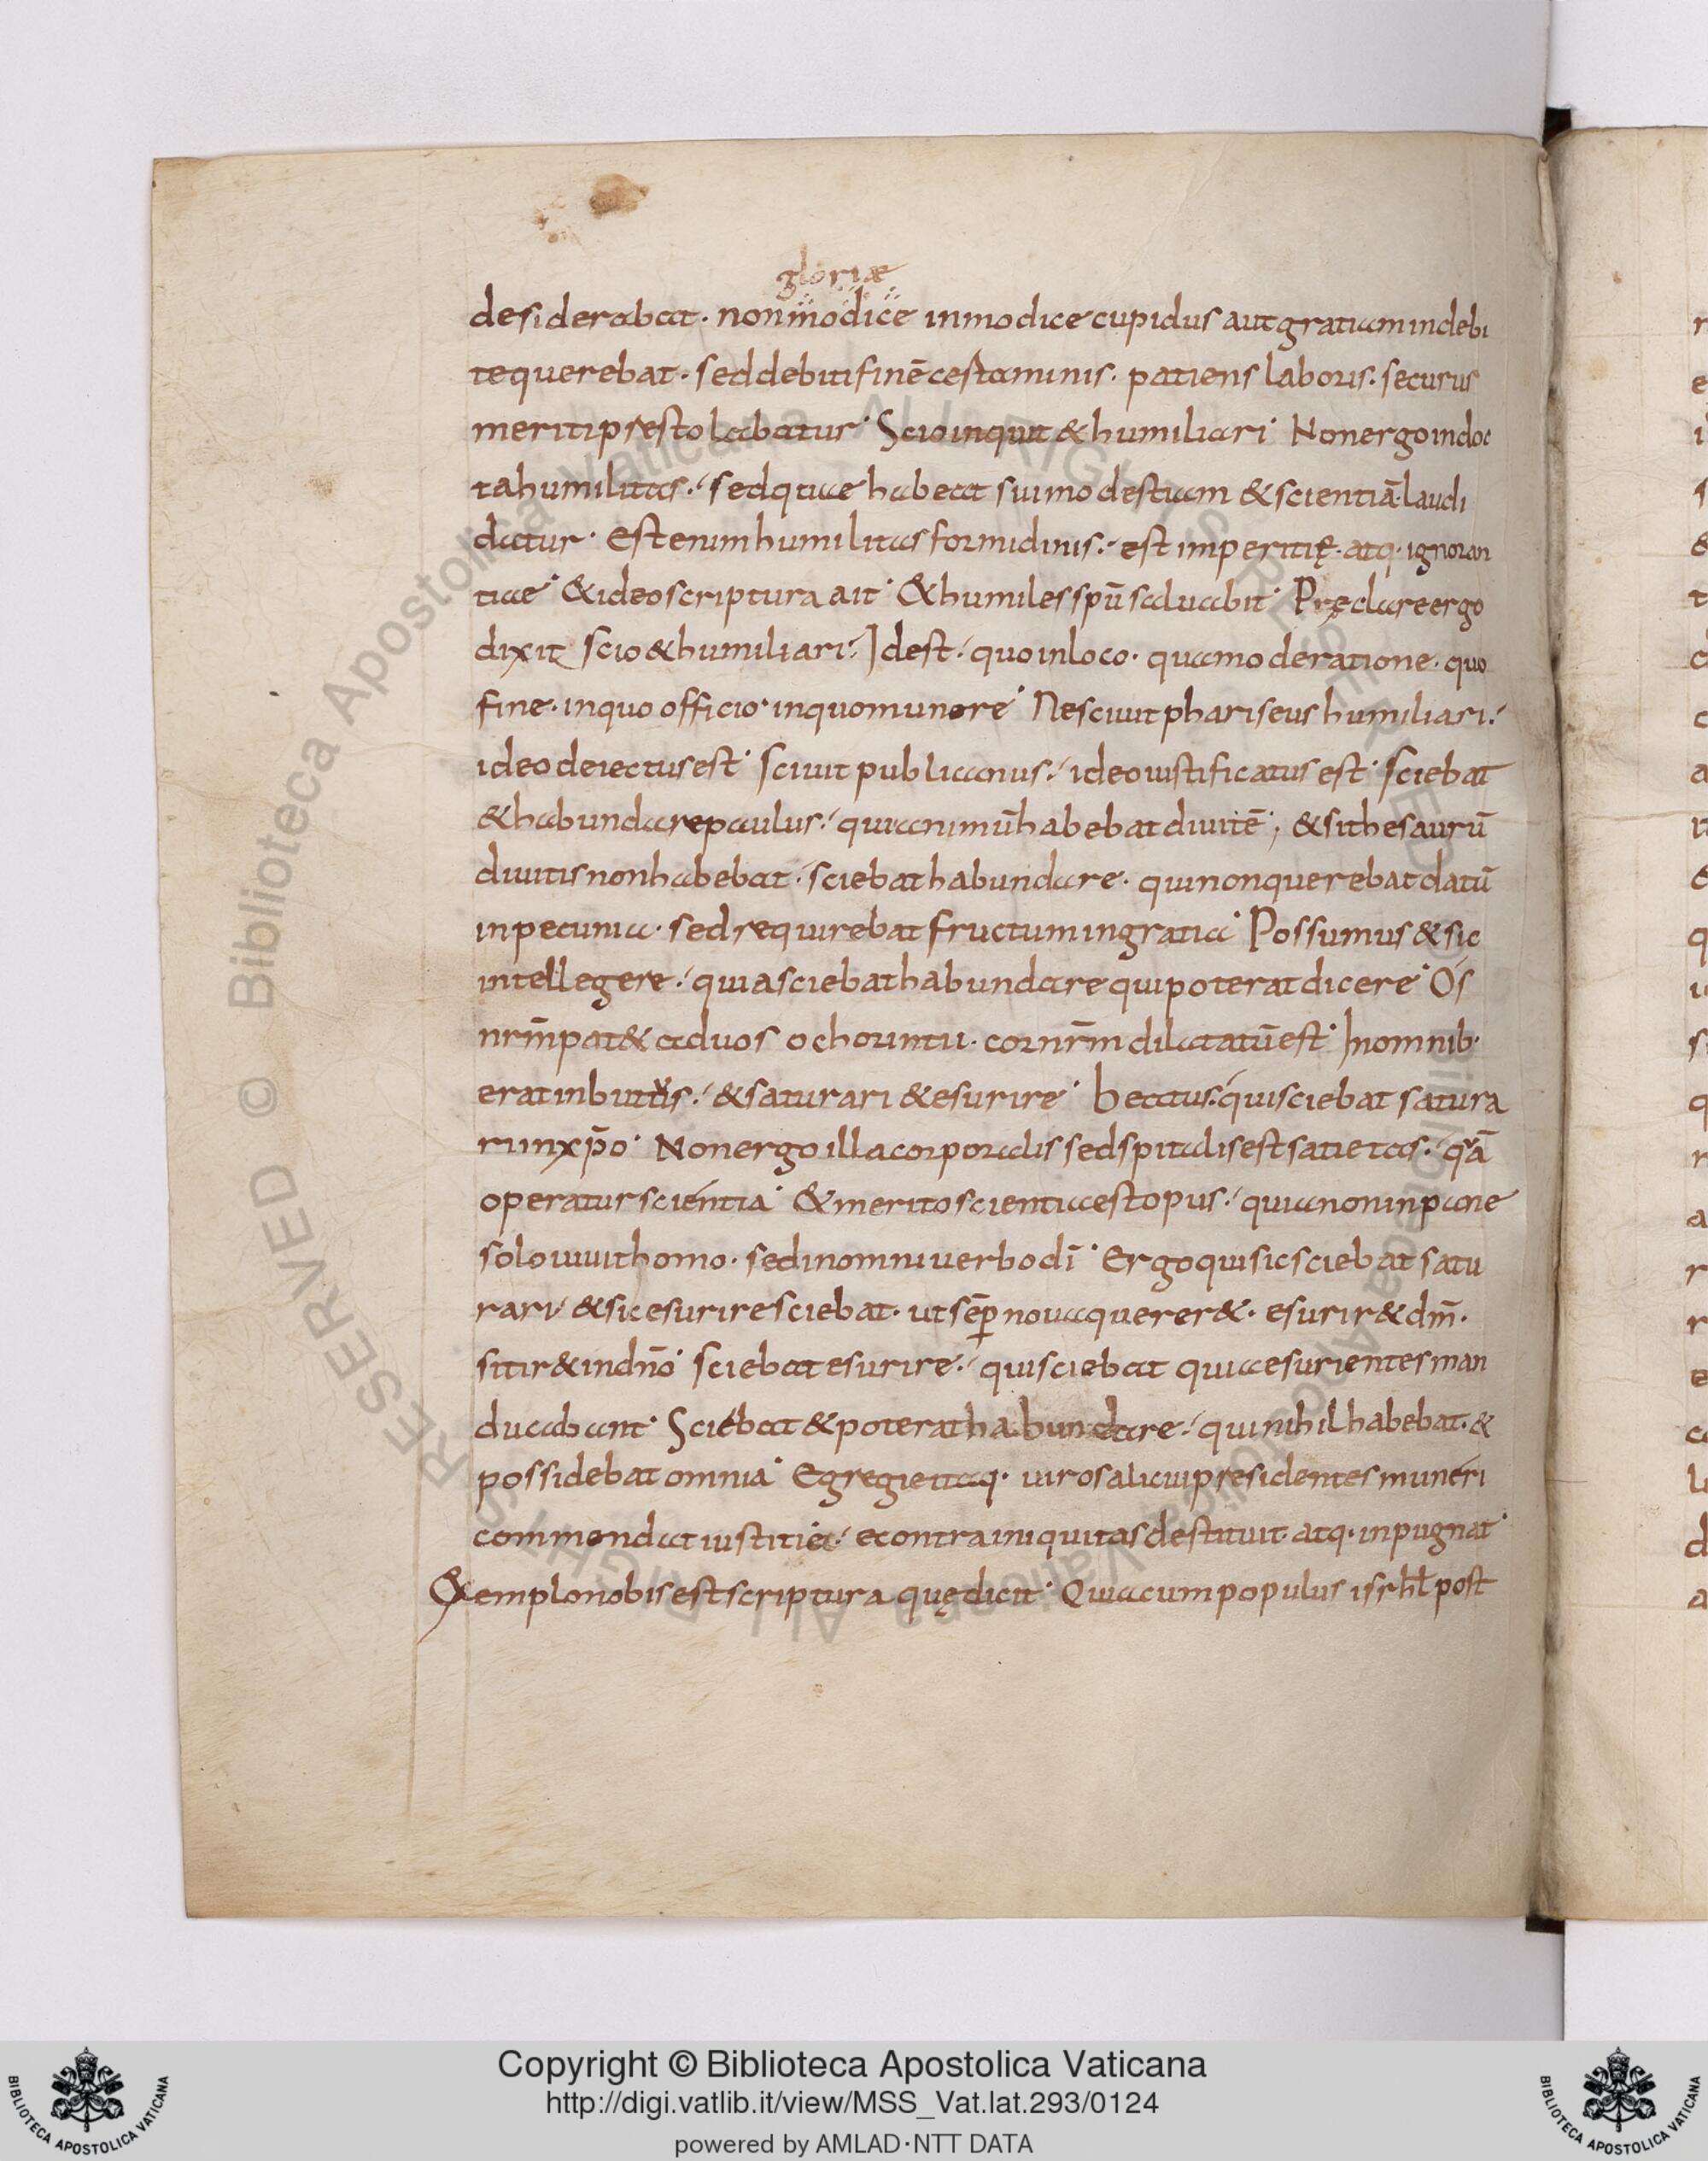 gloriæ
desiderabat· non modice inmodice cupidus aut gratiam indebi
te querebat· sed debiti finē cestaminis· patiens laboris· securus
meriti prestolabatur· Scio inquit & humiliari· Non ergo indoc
ta humilitas· sed quae habeat sui modestiam & scientiā· laudi
datur· Est enim humilitas formidinis· est imperitię· atq· ignoran
tiae· & ideo scriptura ait· & humiles spū saluabit· Pręclare ergo
dixit scio & humiliari· Idest· quo in loco· qua moderatione· quo
fine· in quo officio· in quo munere· Nesciuit phariseus humiliari·
ideo deiectus est· sciuit publicanus· ideo iustificatus est· sciebat
& habundare paulus· quia animū habebat diuitē; & si thesaurū
diuitis non habebat· sciebat habundare· qui non querebat datū
in pecunia· sed requirebat fructum in gratia· Possumus & sic
intellegere· quia sciebat habundare qui poterat dicere· Os
nr̄m pat& ad uos o chorintii· cor nr̄m dilatatū est· In omnib·
erat inbutus· & saturari & esurire· beatus· qui sciebat satura
ri in xp̄o· Non ergo illa corporalis sed spitalis est satietas· quā
operatur scientia· & merito scientiae est opus· quia non in pane
solo uiuit homo· sed in omni uerbo dī· Ergo qui sic sciebat satu
rari· & sic esurire sciebat· ut sēp noua querer&· esurir& dm̄·
sitir& in dn̄o· sciebat esurire· qui sciebat quia esurientes man
ducabant· Sciebat & poterat habundare· qui nihil habebat· &
possidebat omnia· Egregie itaq· uiros alicui presidentes muneri
commendat iustitia· econtra iniquitas destituit· atq· inpugnat·
Exemplo nobis est scriptura quę dicit· Quia cum populus isrhl̄ post
Copyright © Biblioteca Apostolica Vaticana
http://digi.vatlib.it/view/MSS_Vat.lat.293/0124
powered by AMLAD·NTT DATA
BIBLIOTECA APOSTOLICA VATICANA
BIBLIOTECA APOSTOLICA VATICANA